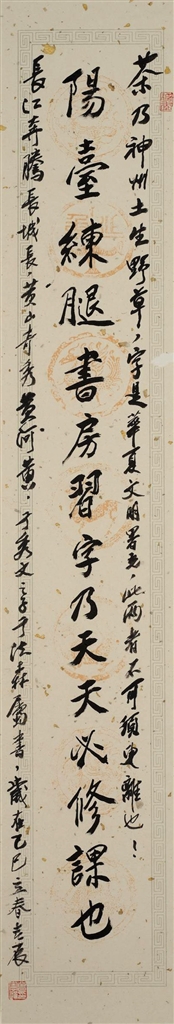 茶乃神州土生野草，字是華夏文明署光，此兩者不可須臾離也！
陽臺練腿書房習字乃天天必修課也
長江奔騰長城長，黃山奇秀黃河黃，于秀文之子于洪森屬書，歲在乙巳立春吉辰